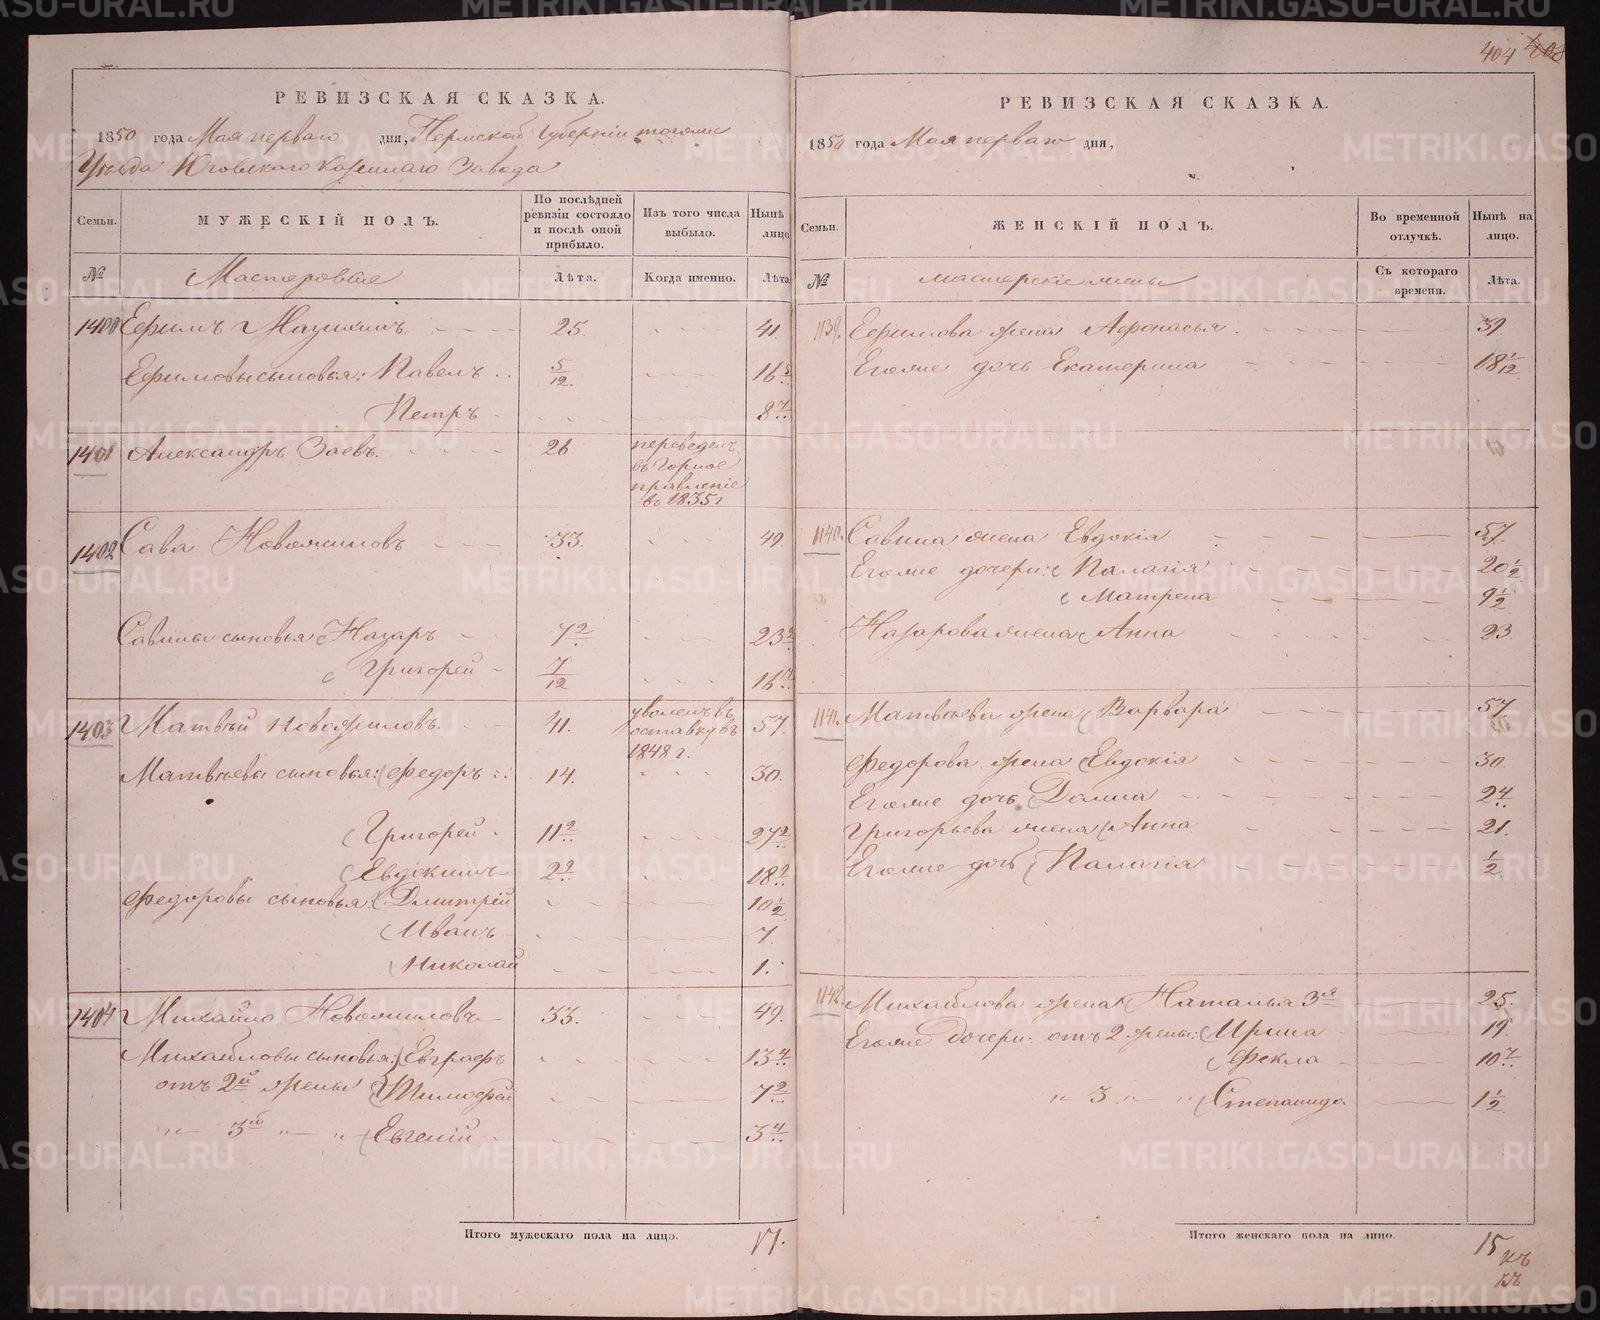 404 408
РЕВИЗСКАЯ СКАЗКА.
1850 года Мая перваго дня, Пермской Губерніи тогоже
Уѣзда Юговскаго Казеннаго Завода
Семьи. МУЖЕСКІЙ ПОЛЪ. По послѣдней ревизіи состояло и послѣ оной прибыло. Изъ того числа выбыло. Нынѣ лицо
№ Мастеровые Лѣта. Когда именно. Лѣта
1400 Ефимъ 25. 41.
Ефимовы сыновья: Павелъ 5/12. 16
Петръ 8
1401 Александръ Заевъ. 26 переведенъ
въ Горное
правленіе
въ 1835 г
1402 Сава Новожиловъ 33. 49.
Савины сыновья Назаръ 7 23
Григорей 7/12 16
1403 Матвѣй Новожиловъ. 41. уволенъ въ отставку въ 1848 г. 57.
Матвѣевы сыновья: Федоръ 14. 30.
Григорей 11 27
Евдокимъ 2 18
Федоровы сыновья: Дмитрей 10 1/2
Иванъ 7.
Николай 1.
1404 Михайло Новожиловъ 33. 49.
Михайловы сыновья: Евграфъ 13
отъ 2й жены Тимофей 7
" 3й " " Евгеній 3
Итого мужескаго пола на лицо. 17.
РЕВИЗСКАЯ СКАЗКА.
1850 года Мая перваго дня,
Семьи. ЖЕНСКІЙ ПОЛЪ. Во временной отлучкѣ. Нынѣ на лицо.
№ мастерскіе жены Съ котораго времени. Лѣта.
1139. Ефимова жена Афонасья 39.
Егоже дочь Екатерина 18 1/12
1140. Савина жена Евдокія 57.
Егоже дочери: Палагія 20 1/2
Матрена 9 1/2
Назарова жена Анна 23
1141. Матвѣева жена Варвара 57
Федорова жена Евдокія 30
Егоже дочь Домна 2
Григорьева жена Анна 21.
Егоже дочь Палагія 1/2
1142. Михайлова жена Наталья 3я 25.
Егоже дочери: отъ 2 жены: Ирина 19
Фекла 10
" 3 " " Степанида 1 1/2
Итого женскаго пола на лицо. 15
METRIKI.GASO-URAL.RU